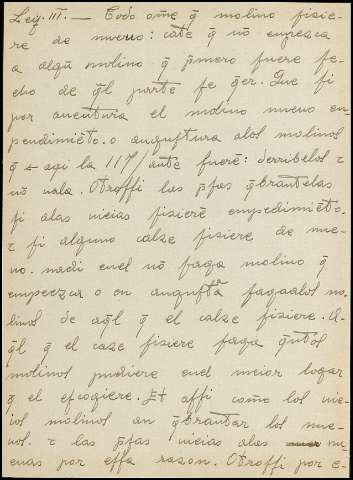 Ley. III. — Todo om̃e q̃ molino fisie-
re de nuevo: cate q̃ nõ enpezca
a algũ molino q̃ p̃mero fuere fe-
cho de q̃l parte fe q̃er. Que fi
por auentura el molino nueuo en-
pendimiẽto. o anguftura alos molinos
q̃ aqi la ante fuerẽ: derribelos ⁊
nõ uala. Otroffi las p̃fas q̃brãtelas
fi alas uieias fisierẽ enpedimiẽto.
⁊ fi alguno calze fisiere de nue-
uo. nadi enel nõ faga molino q̃
enpeezca o en anguftã fagaalos mo-
linos de aq̃l q̃ el calze fisiere. A-
q̃l q̃ el caze fisiere faga q̃ntos
molinos pudiere enel meior logar
q̃ el efcogiere. Et affi como los uie-
ios molinos an q̃brantar los nue-
uos. ⁊ las p̃fas uieias alas nu-
euas por effa razon. Otroffi por e-